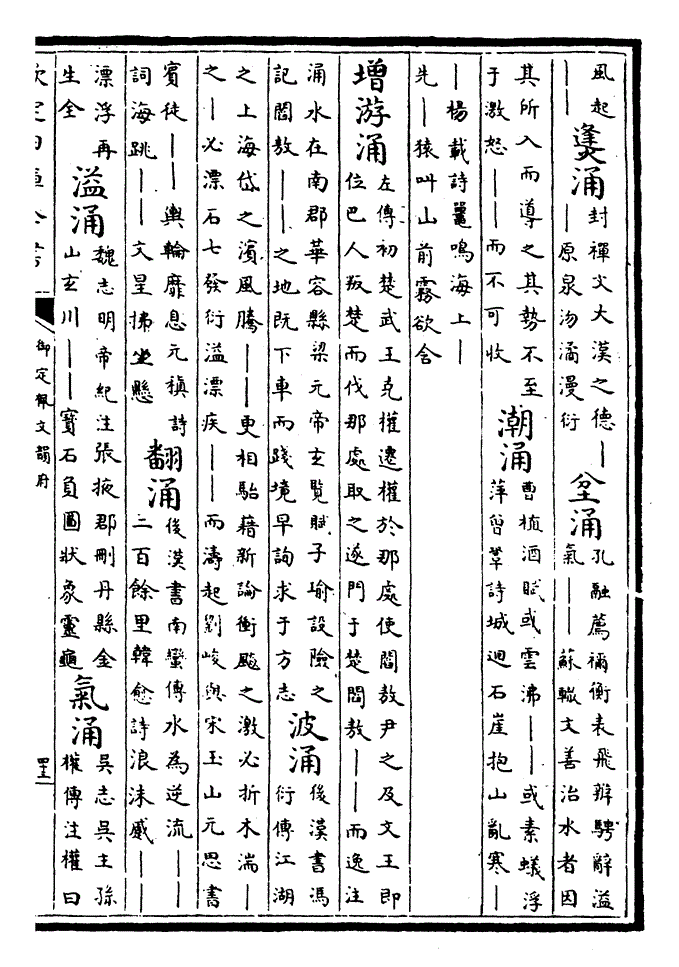 風起
——
㷭涌
封禪文大漢之德—
—原泉沕潏漫衍
坌涌
孔融薦禰衡表飛辯騁辭溢
氣——蘇轍文善治水者因
其所入而導之其勢不至
于激怒——而不可收
潮涌
曹植酒賦或雲沸——或素蟻浮
萍曾鞏詩城迴石崖抱山亂寒—
—楊載詩鼉鳴海上—
先—猿叫山前霧欲含
增游涌
左傳初楚武王克權遷權於那處使閻敖尹之及文王即
位巴人叛楚而伐那處取之遂門于楚閻敖——而逸注
涌水在南郡華容縣梁元帝玄覽賦子瑜設險之
記閻敖——之地既下車而踐境早詢求于方志
波涌
後漢書馮
衍傳江湖
之上海岱之濱風騰——更相駘藉新論衝飈之激必折木湍—
之—必漂石七發衍溢漂疾——而濤起劉峻與宋玉山元思書
賓徒——輿輪靡息元稹詩
詞海跳——文星拂坐懸
翻涌
後漢書南蠻傳水為逆流——
二百餘里韓愈詩浪沫蹙——
漂浮再
生全
溢涌
魏志明帝紀注張掖郡刪丹縣金
山玄川——寶石負圖狀象靈龜
氣涌
吳志吳主孫
權傳注權曰
欽定四庫全書
御定佩文韻府